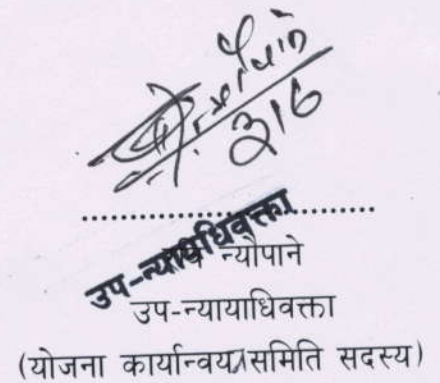 उप-न्यायाधिवक्ता
न्यौपाने
उप-न्यायाधिवक्ता
(योजना कार्यान्वयन समिति सदस्य)